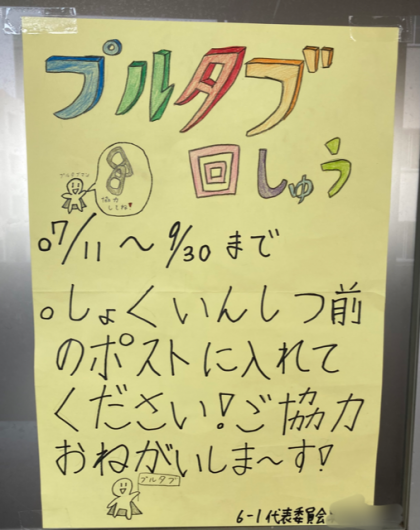 プルタブ
回しゅう
プルタブマン
協力
してね!
○7/11〜9/30まで
○しょくいんしつ前
のポストに入れて
ください!ご協力
おねがいしま〜す!
プルタブ
6-1代表委員会